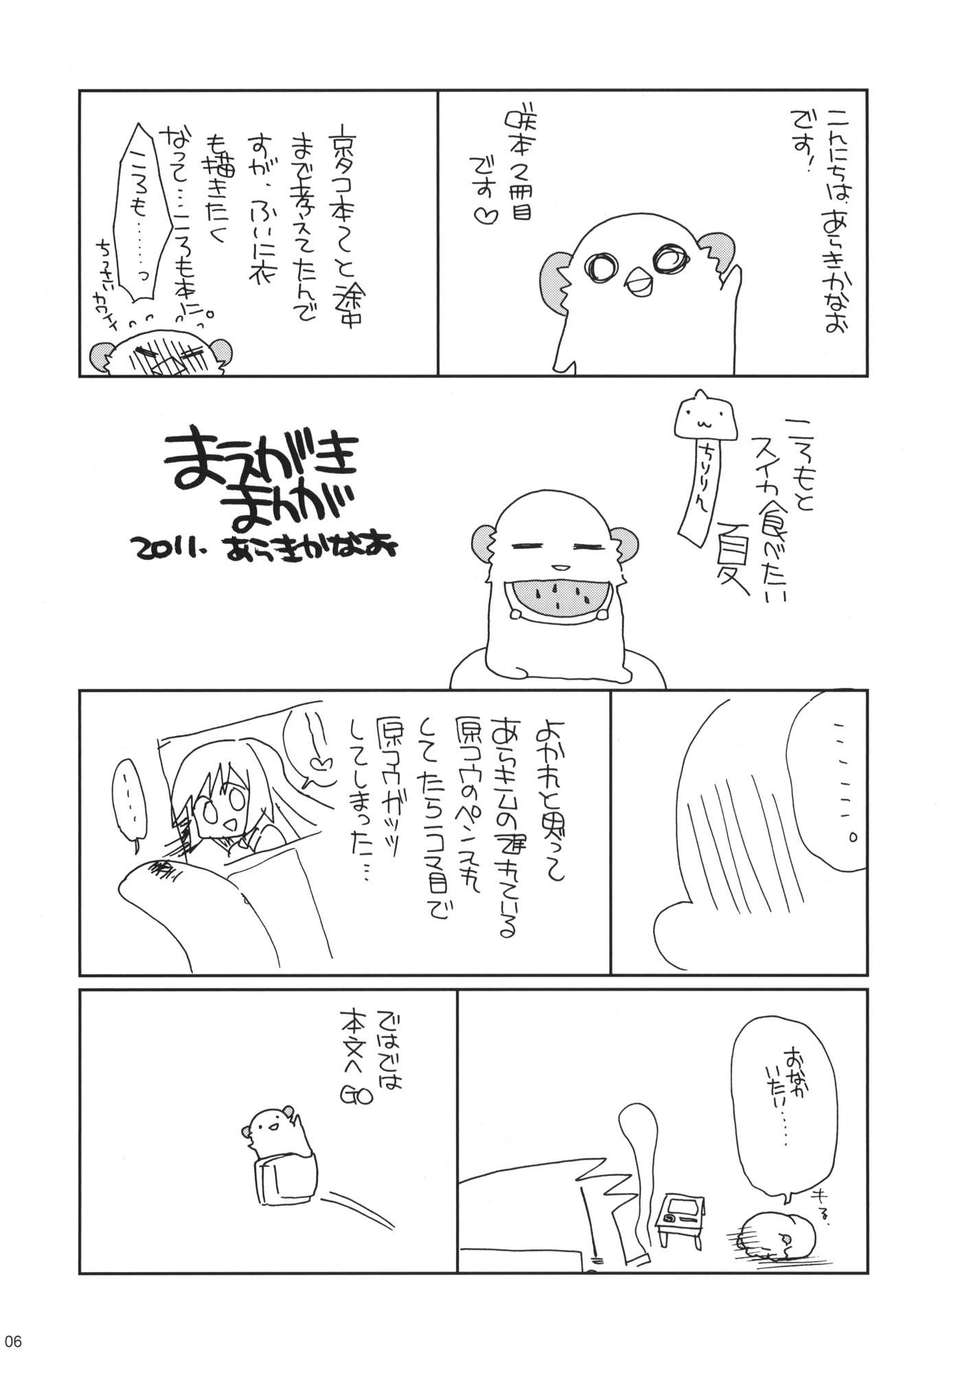 こんにちは、あらきかなお
です!
咲本2冊目
です♡
京タコ本てと途中
まで考えてたんで
すが、ふいに衣
も描きたく
なって…ころも本に。
ころも……っ
ちっさいカワイイ
ころもと
スイカ食べたい
夏
ちりりん
まえがき
まんが
2011. あらきかなお
……。
よかれと思って
あらきムの遅れている
原コウのペン入れ
してたら1コマ目で
原コウガッツ
してしまった…
…
おなか
いたい……
キる
ではでは
本文へ
GO
06